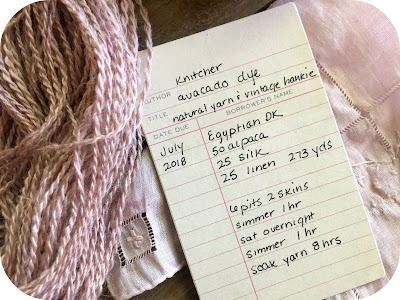 Knitcher
AUTHOR
avacado dye
TITLE natural yarn & vintage hankie
DATE DUE BORROWER'S NAME
July Egyptian DK
2018 50 alpaca
25 silk
25 linen 273 yds
6 pits 2 skins
simmer 1 hr
sat overnight
simmer 1 hr
soak yarn 8 hrs